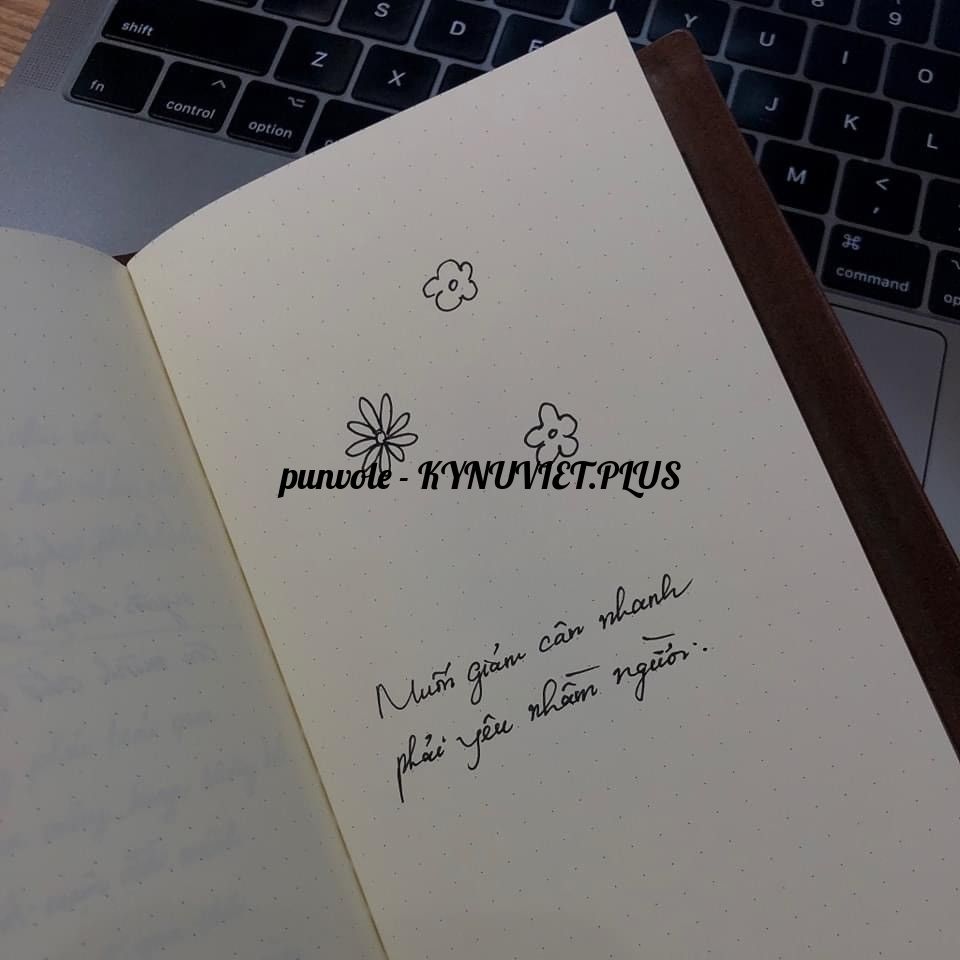 shift
S
D
Y
U
I
O
8
9
fn
control
option
Z
X
J
K
L
M
<
,
⌘
command
punvole - KYNUVIET.PLUS
Muốn giảm cân nhanh
phải yêu nhầm người.